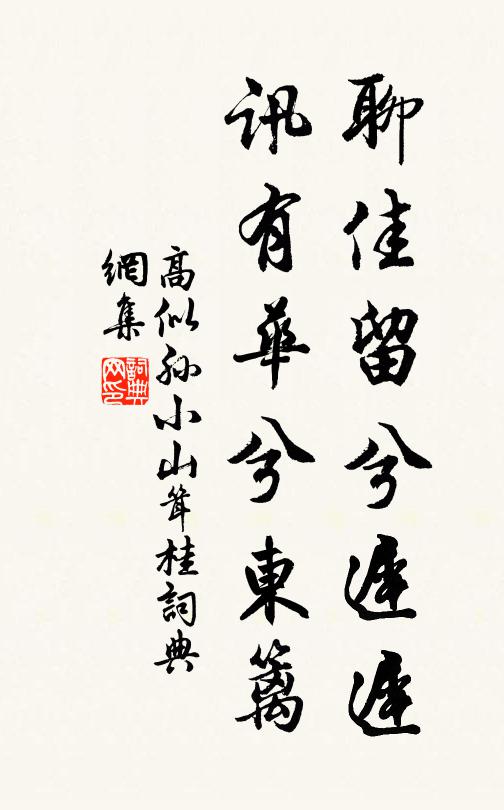 聊佳留兮遲遲
訊有華兮東籬
高似孫小山耸桂詞典
網集
詞典网印